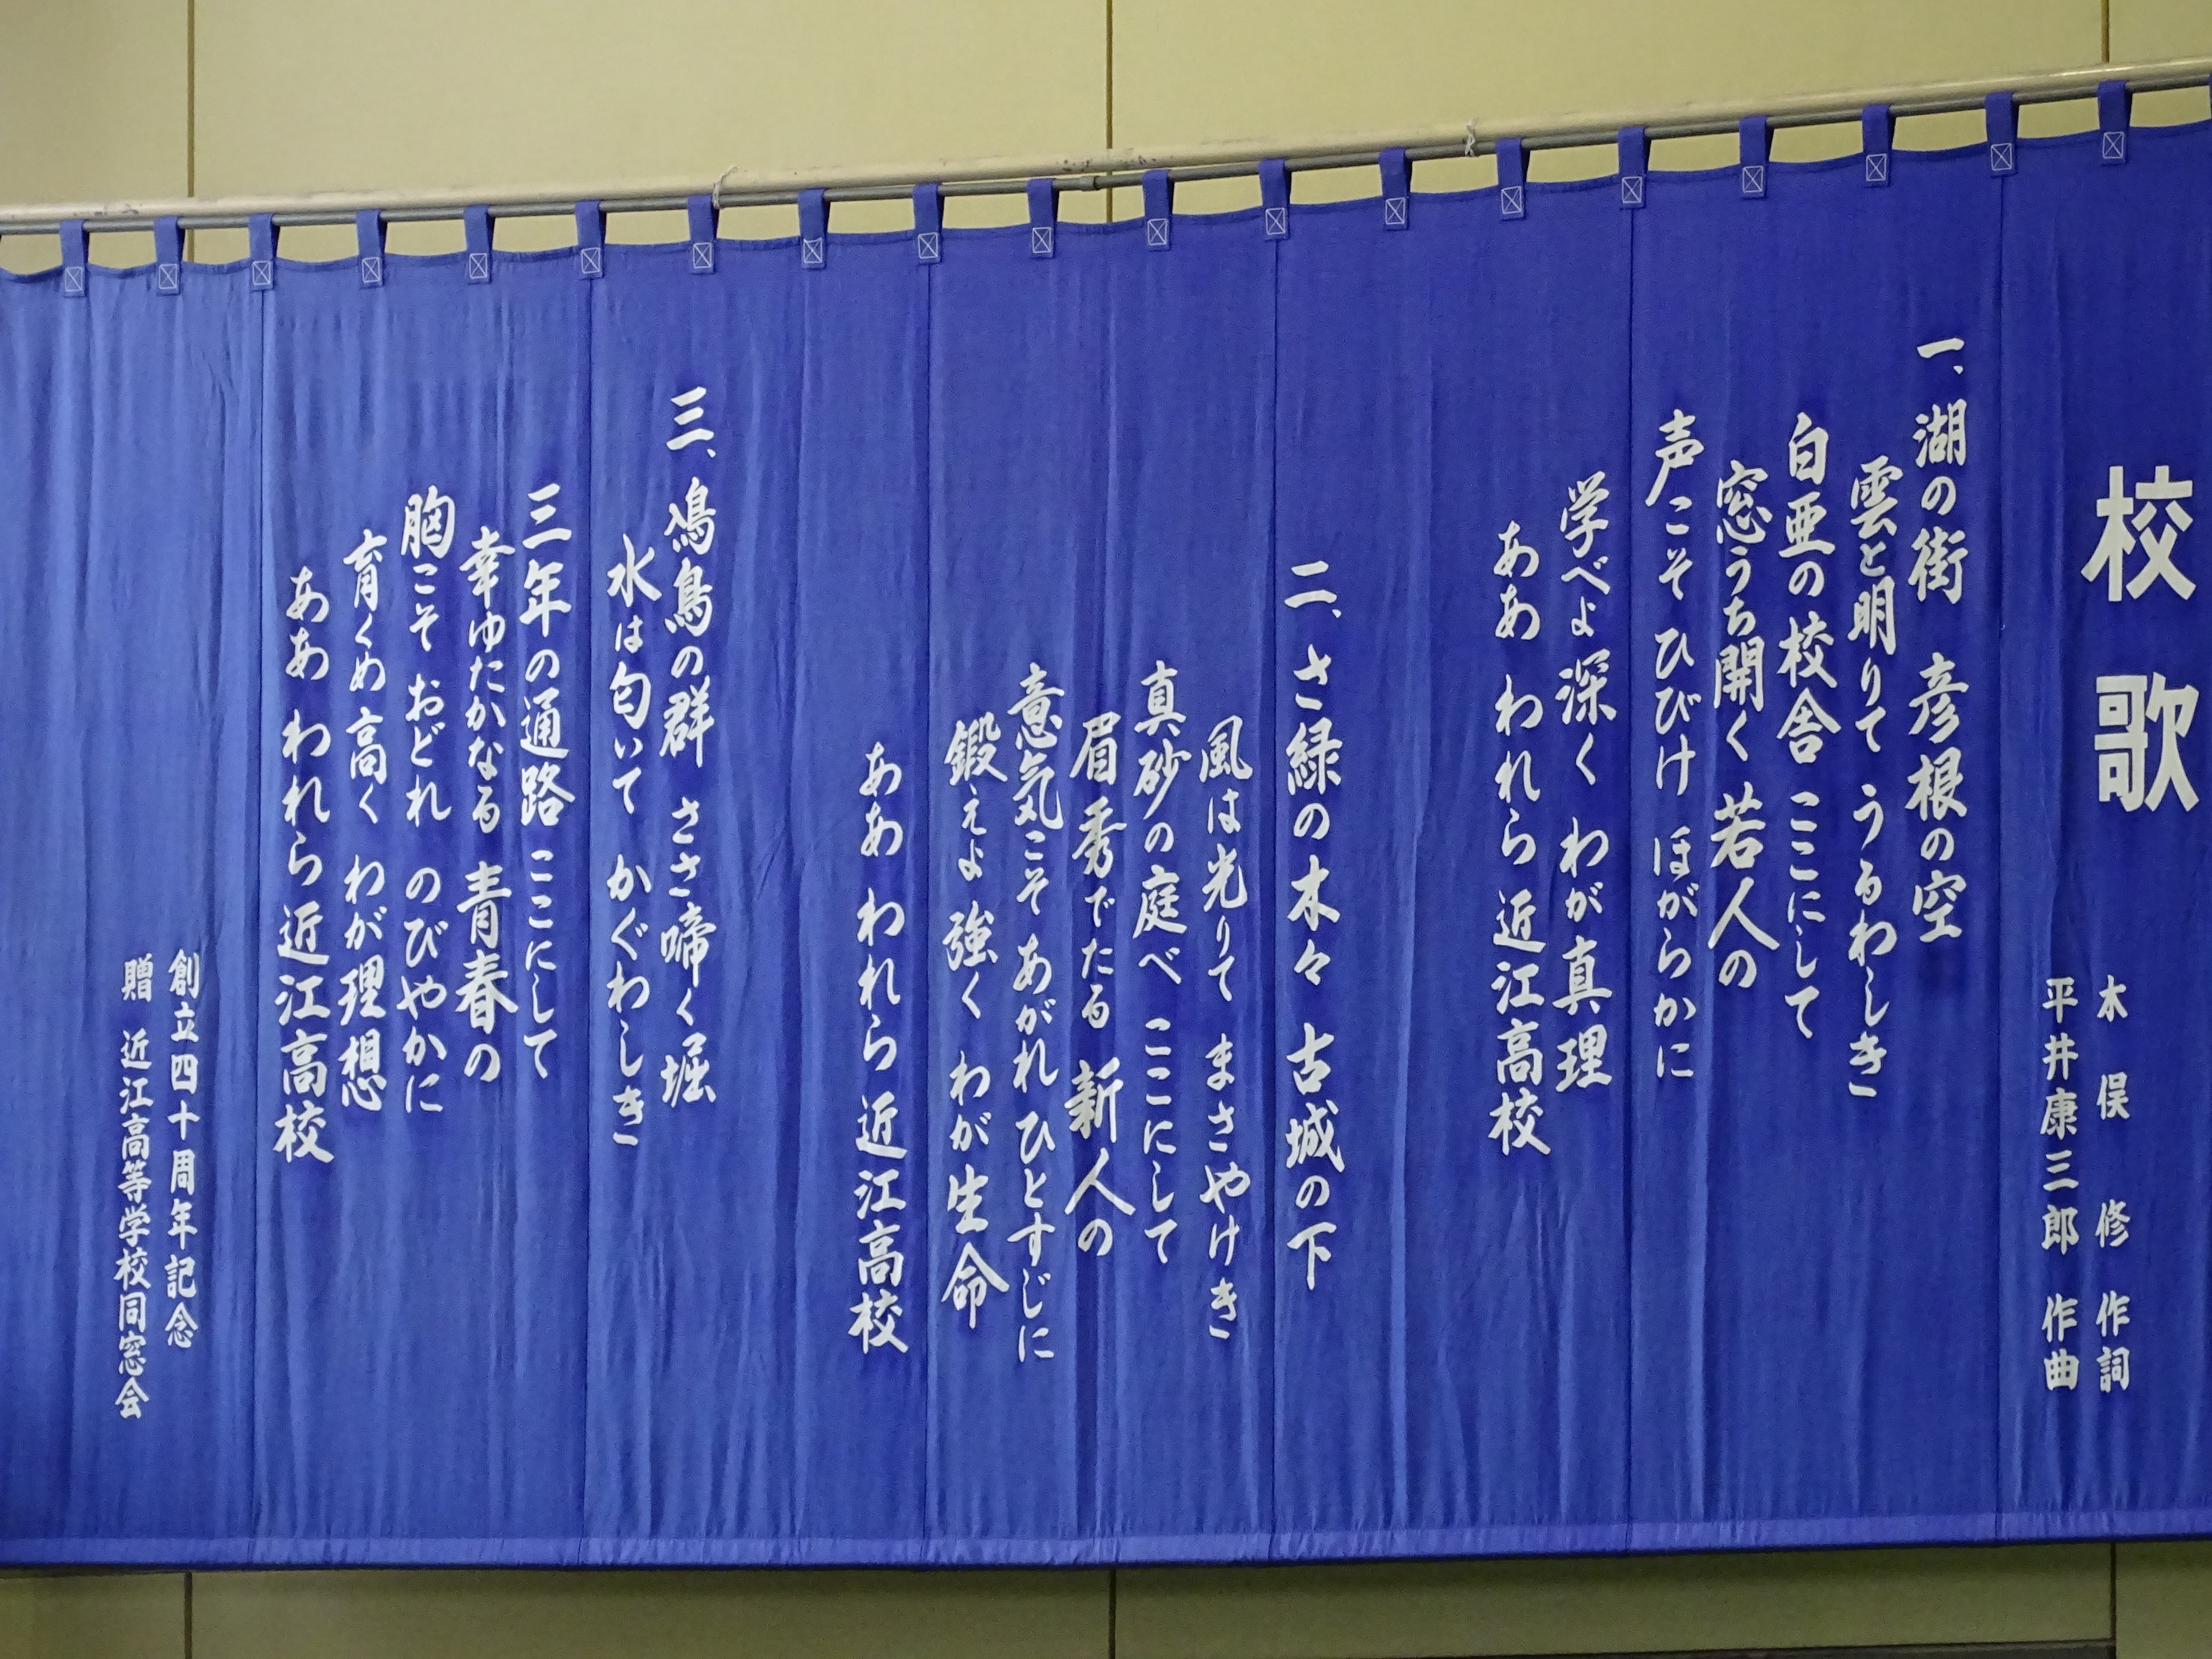 校歌
木俣 修 作詞
平井康三郎 作曲
一、湖の街 彦根の空
雲と明りて うるわしき
白亜の校舎 ここにして
窓うち開く 若人の
声こそ ひびけ ほがらかに
学べよ 深く わが真理
ああ われら 近江高校
二、さ緑の木々 古城の下
風は光りて まさやけき
真砂の庭べ ここにして
眉秀でたる 新人の
意気こそ あがれ ひとすじに
鍛えよ 強く わが生命
ああ われら 近江高校
三、鳰鳥の群 ささ啼く堀
水は匂いて かぐわしき
三年の通路 ここにして
幸ゆたかなる 青春の
胸こそ おどれ のびやかに
育くめ 高く わが理想
ああ われら 近江高校
創立四十周年記念
贈 近江高等学校同窓会